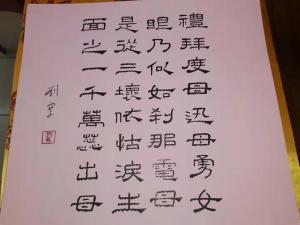 禮拜度母迅母勇女
眼乃似如剎那電母
是從三壞依怙淚生
面之一千萬蕊出母